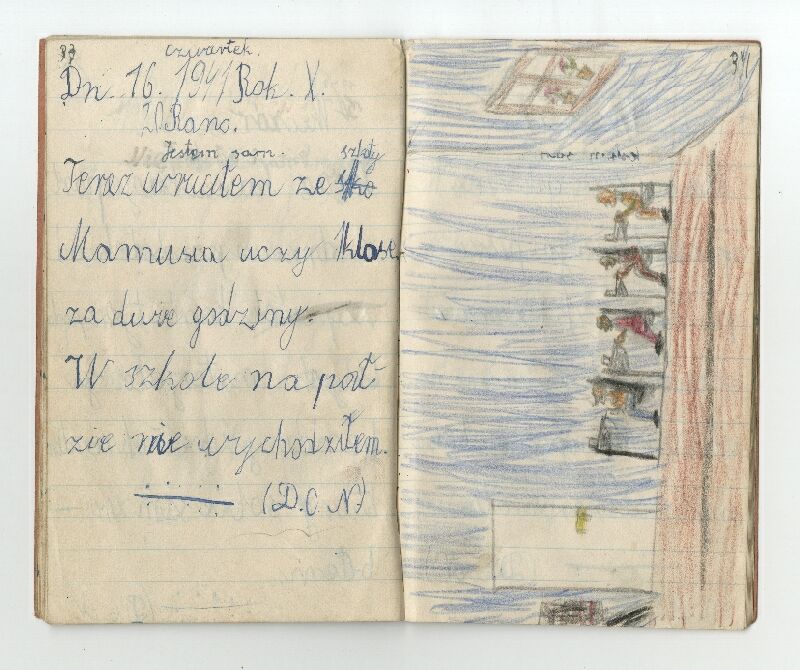 33
czwartek.
Dn. 16. 1941 Rok. X.
20 Rano.
Jestem sam. szkoły
Teraz wruciłem ze
Mamusia uczy klase
za duże godziny.
W szkole na pał-
zie nie wychodziłem.
(D.C.N)
34